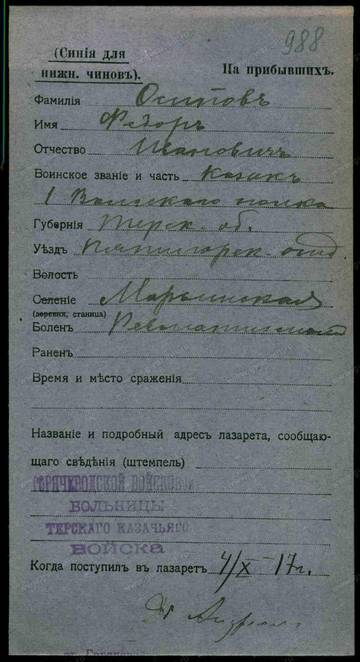 988
(Синія для
нижн. чиновъ).
На прибывшихъ.
Фамилія Осиповъ
Имя Федоръ
Отчество Ивановичъ
Воинское званіе и часть Казакъ
1 Волгскаго полка
Губернія Терск. об.
Уѣздъ Пятигорск. отд
Волость
Селеніе Марьинская
(деревня, станица)
Боленъ Ревматизмомъ
Раненъ
Время и мѣсто сраженія
Названіе и подробный адресъ лазарета, сообщаю-
щаго свѣдѣнія (штемпель)
ГОРЯЧЕВОДСКОЙ ВОЙСКОВОЙ
БОЛЬНИЦЫ
ТЕРСКАГО КАЗАЧЬЯГО
ВОЙСКА
Когда поступилъ въ лазаретъ 4/X 17 г.